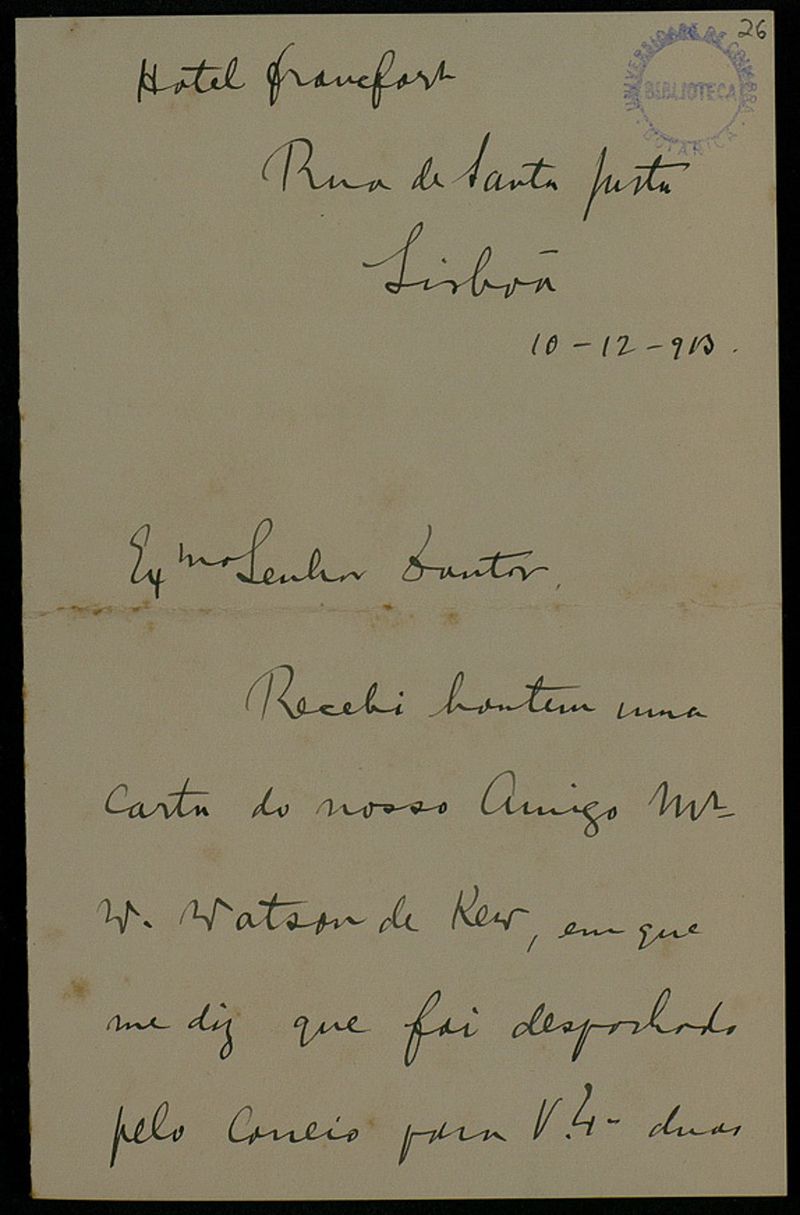 26
UNIVERSIDADE DE COIMBRA
BIBLIOTECA
BOTANICA
Hotel Francfort
Rua de Santa Justa
Lisboa
10-12-913.
Exmo Senhor Doutor,
Recebi hontem uma
carta do nosso Amigo Mr
W. Watson de Kew, em que
me diz que foi despachado
pelo correio para V. Ex duas